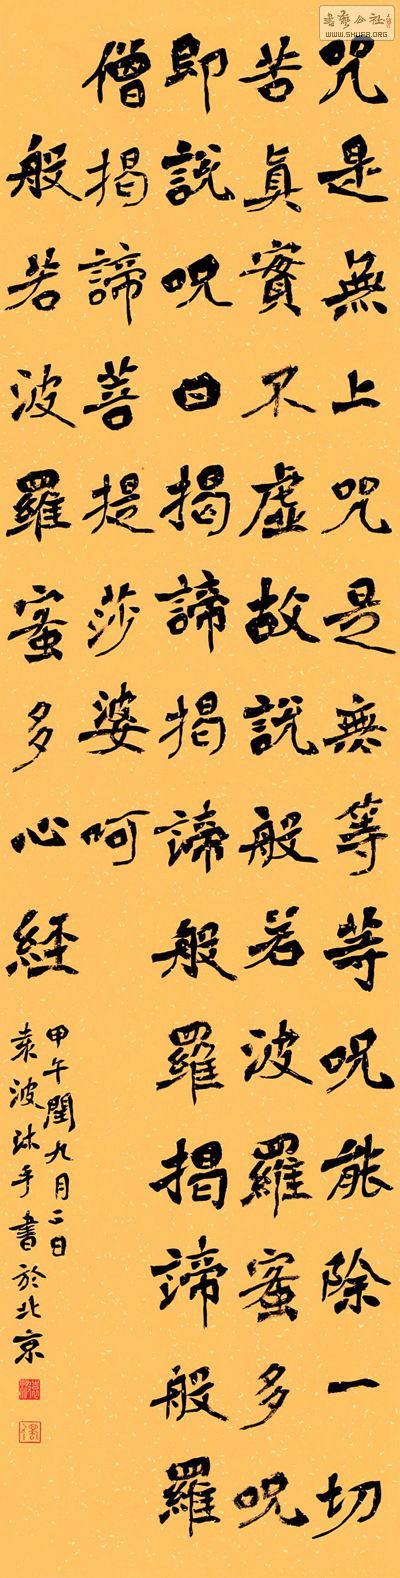 書藝公社
WWW.SHUFA.ORG
咒是無上咒是無等等呪能除一切
苦真實不虛故說般若波羅蜜多呪
即說呪曰揭諦揭諦般羅揭諦般羅
僧揭諦菩提莎婆呵
般若波羅蜜多心経
甲午閏九月二日
袁波沐手書於北京